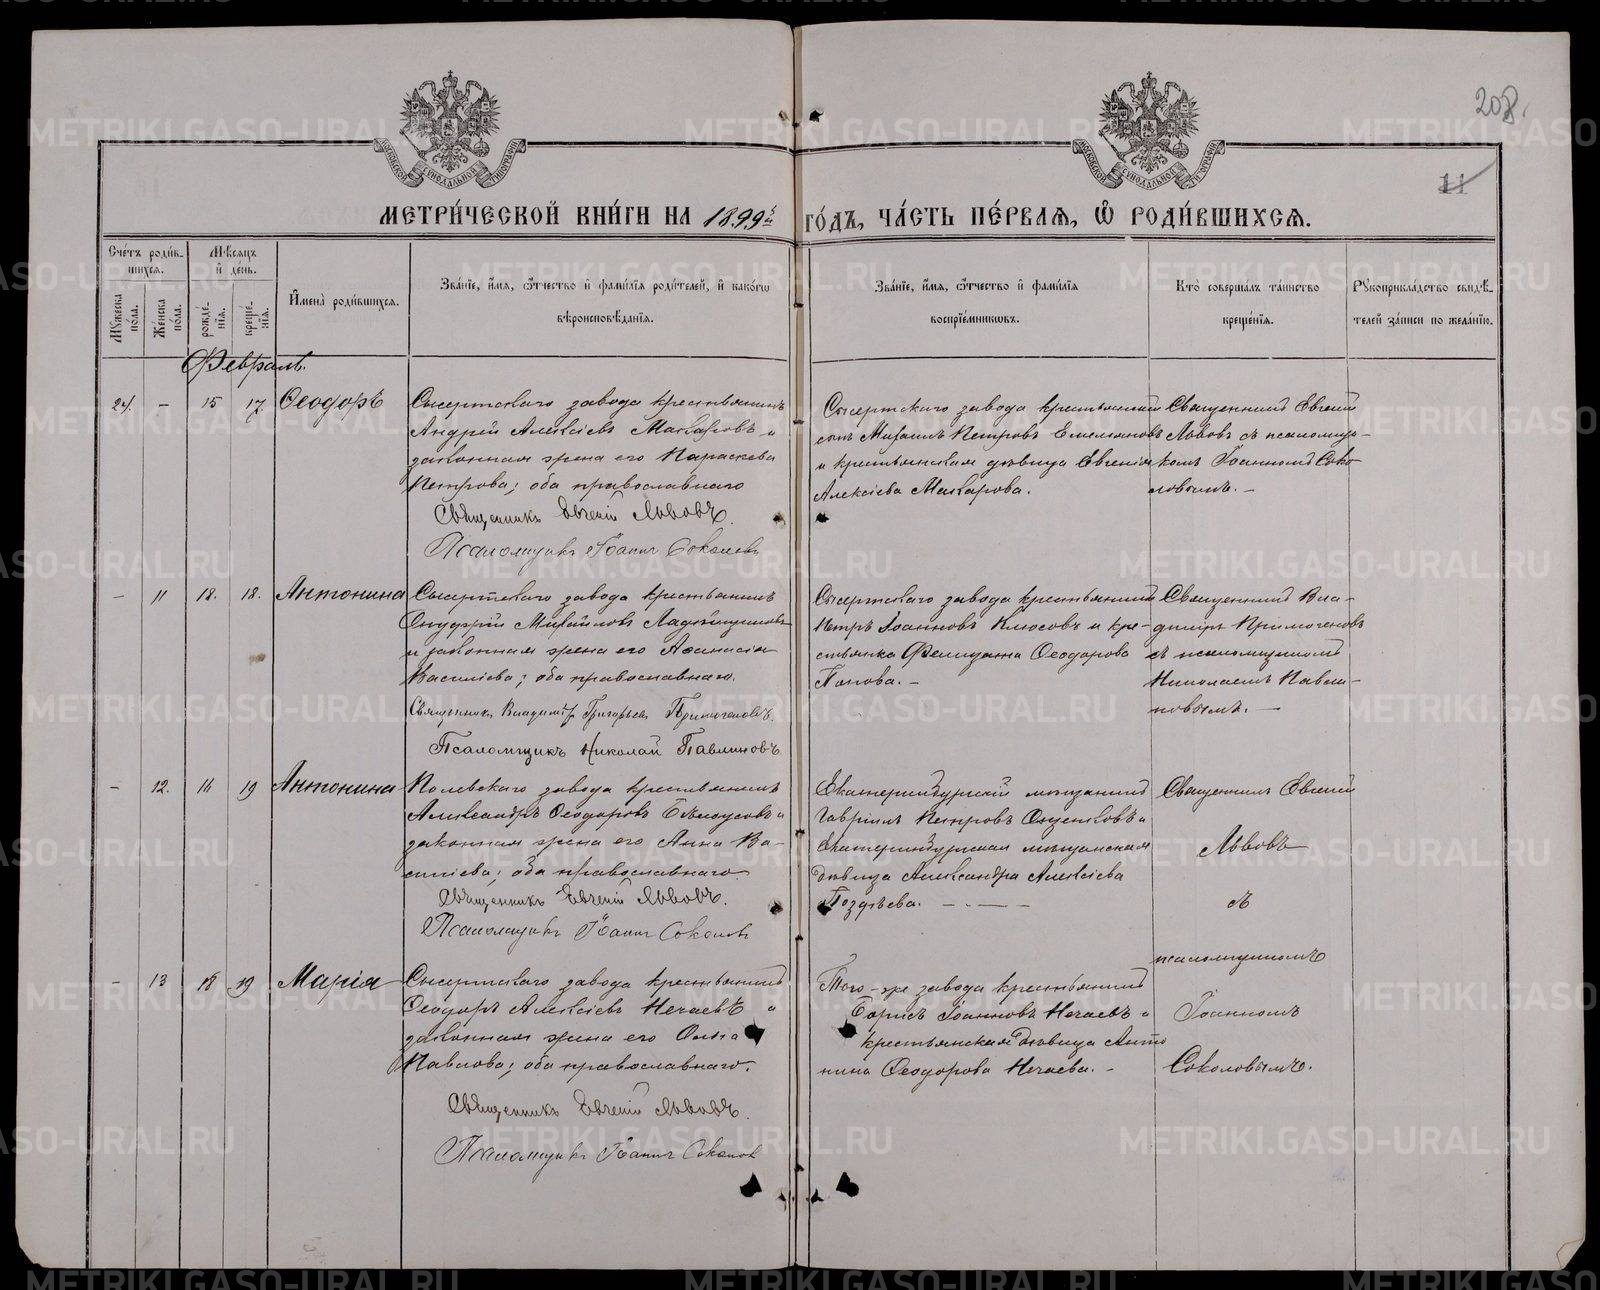 208.
11
МОСКОВСКОЙ СѴНОДАЛЬНОЙ ТИПОГРАФІИ
МОСКОВСКОЙ СѴНОДАЛЬНОЙ ТИПОГРАФІИ
МЕТРИ́ЧЕСКОЙ КНИ́ГИ НА 1899й ГО́ДЪ, ЧА́СТЬ ПЕ́РВАЯ, Ѡ҆ РОДИ́ВШИХСЯ.
Сче́тъ роди́в-
шихся.
Му́жеска по́ла.
Же́нска по́ла.
Мѣ́сяцъ
и҆ де́нь.
рожде́-нїя.
креще́-нїя.
И҆мена̀ роди́вшихся.
Зва́нїе, и҆́мя, ѻ҆́тчество и҆ фами́лїя роди́телей, и҆ како́гѡ
вѣроисповѣ́данїя.
Зва́нїе, и҆́мя, ѻ҆́тчество и҆ фами́лїя
воспрїе́мниковъ.
Кто̀ соверша́лъ та́инство
креще́нїя.
Рукоприкла́дство свидѣ́-
телей за́писи по жела́нїю.
Февраль.
24. – 15 17. Ѳеодоръ
Сысертскаго завода крестьянинъ
Андрей Алексіевъ Макаровъ и
законная жена его Параскева
Петрова; оба православнаго
Священникъ Евгеній Львовъ.
Псаломщикъ Іоаннъ Соколовъ
Сысертскаго завода крестьянскій
сынъ Михаилъ Петровъ Емельяновъ
и крестьянская дѣвица Евгенія
Алексіева Макарова.
Священникъ Евгеній
Львовъ съ псаломщи-
комъ Іоанномъ Соко-
ловымъ. –
– 11 18. 18. Антонина
Сысертскаго завода крестьянинъ
Онуфрій Михайловъ
и законная жена его Аѳанасія
Василіева; оба православнаго.
Священникъ Владиміръ Григорьевъ Примогеновъ.
Псаломщикъ Николай Павлиновъ
Сысертскаго завода крестьянинъ
Петръ Іоанновъ Клюсовъ и кре-
стьянка Фелицата Ѳеодорова
Попова. –
Священникъ Вла-
диміръ Примогеновъ
съ псаломщикомъ
Николаемъ Павли-
новымъ. –
– 12. 16 19 Антонина
Полевскаго завода крестьянинъ
Александръ Ѳеодоровъ Бѣлоусовъ и
законная жена его Анна Ва-
силіева; оба православнаго.
Священникъ Евгеній Львовъ.
Псаломщикъ Іоаннъ Соколовъ
Екатеринбургскій мѣщанинъ
Гавріилъ Петровъ и
Екатеринбургская мѣщанская
дѣвица Александра Алексіева
Поздѣева. – . –
Священникъ Евгеній
Львовъ
съ
псаломщикомъ
Іоанномъ
Соколовымъ.
– 13 18 19 Марія
Сысертскаго завода крестьянинъ
Ѳеодоръ Алексіевъ Нечаевъ и
законная жена его Ольга
Павлова; оба православнаго.
Священникъ Евгеній Львовъ.
Псаломщикъ Іоаннъ Соколовъ
Того-же завода крестьянинъ
Борисъ Іоанновъ Нечаевъ и
крестьянская дѣвица Анто
нина Ѳеодорова Нечаева. –
METRIKI.GASO-URAL.RU